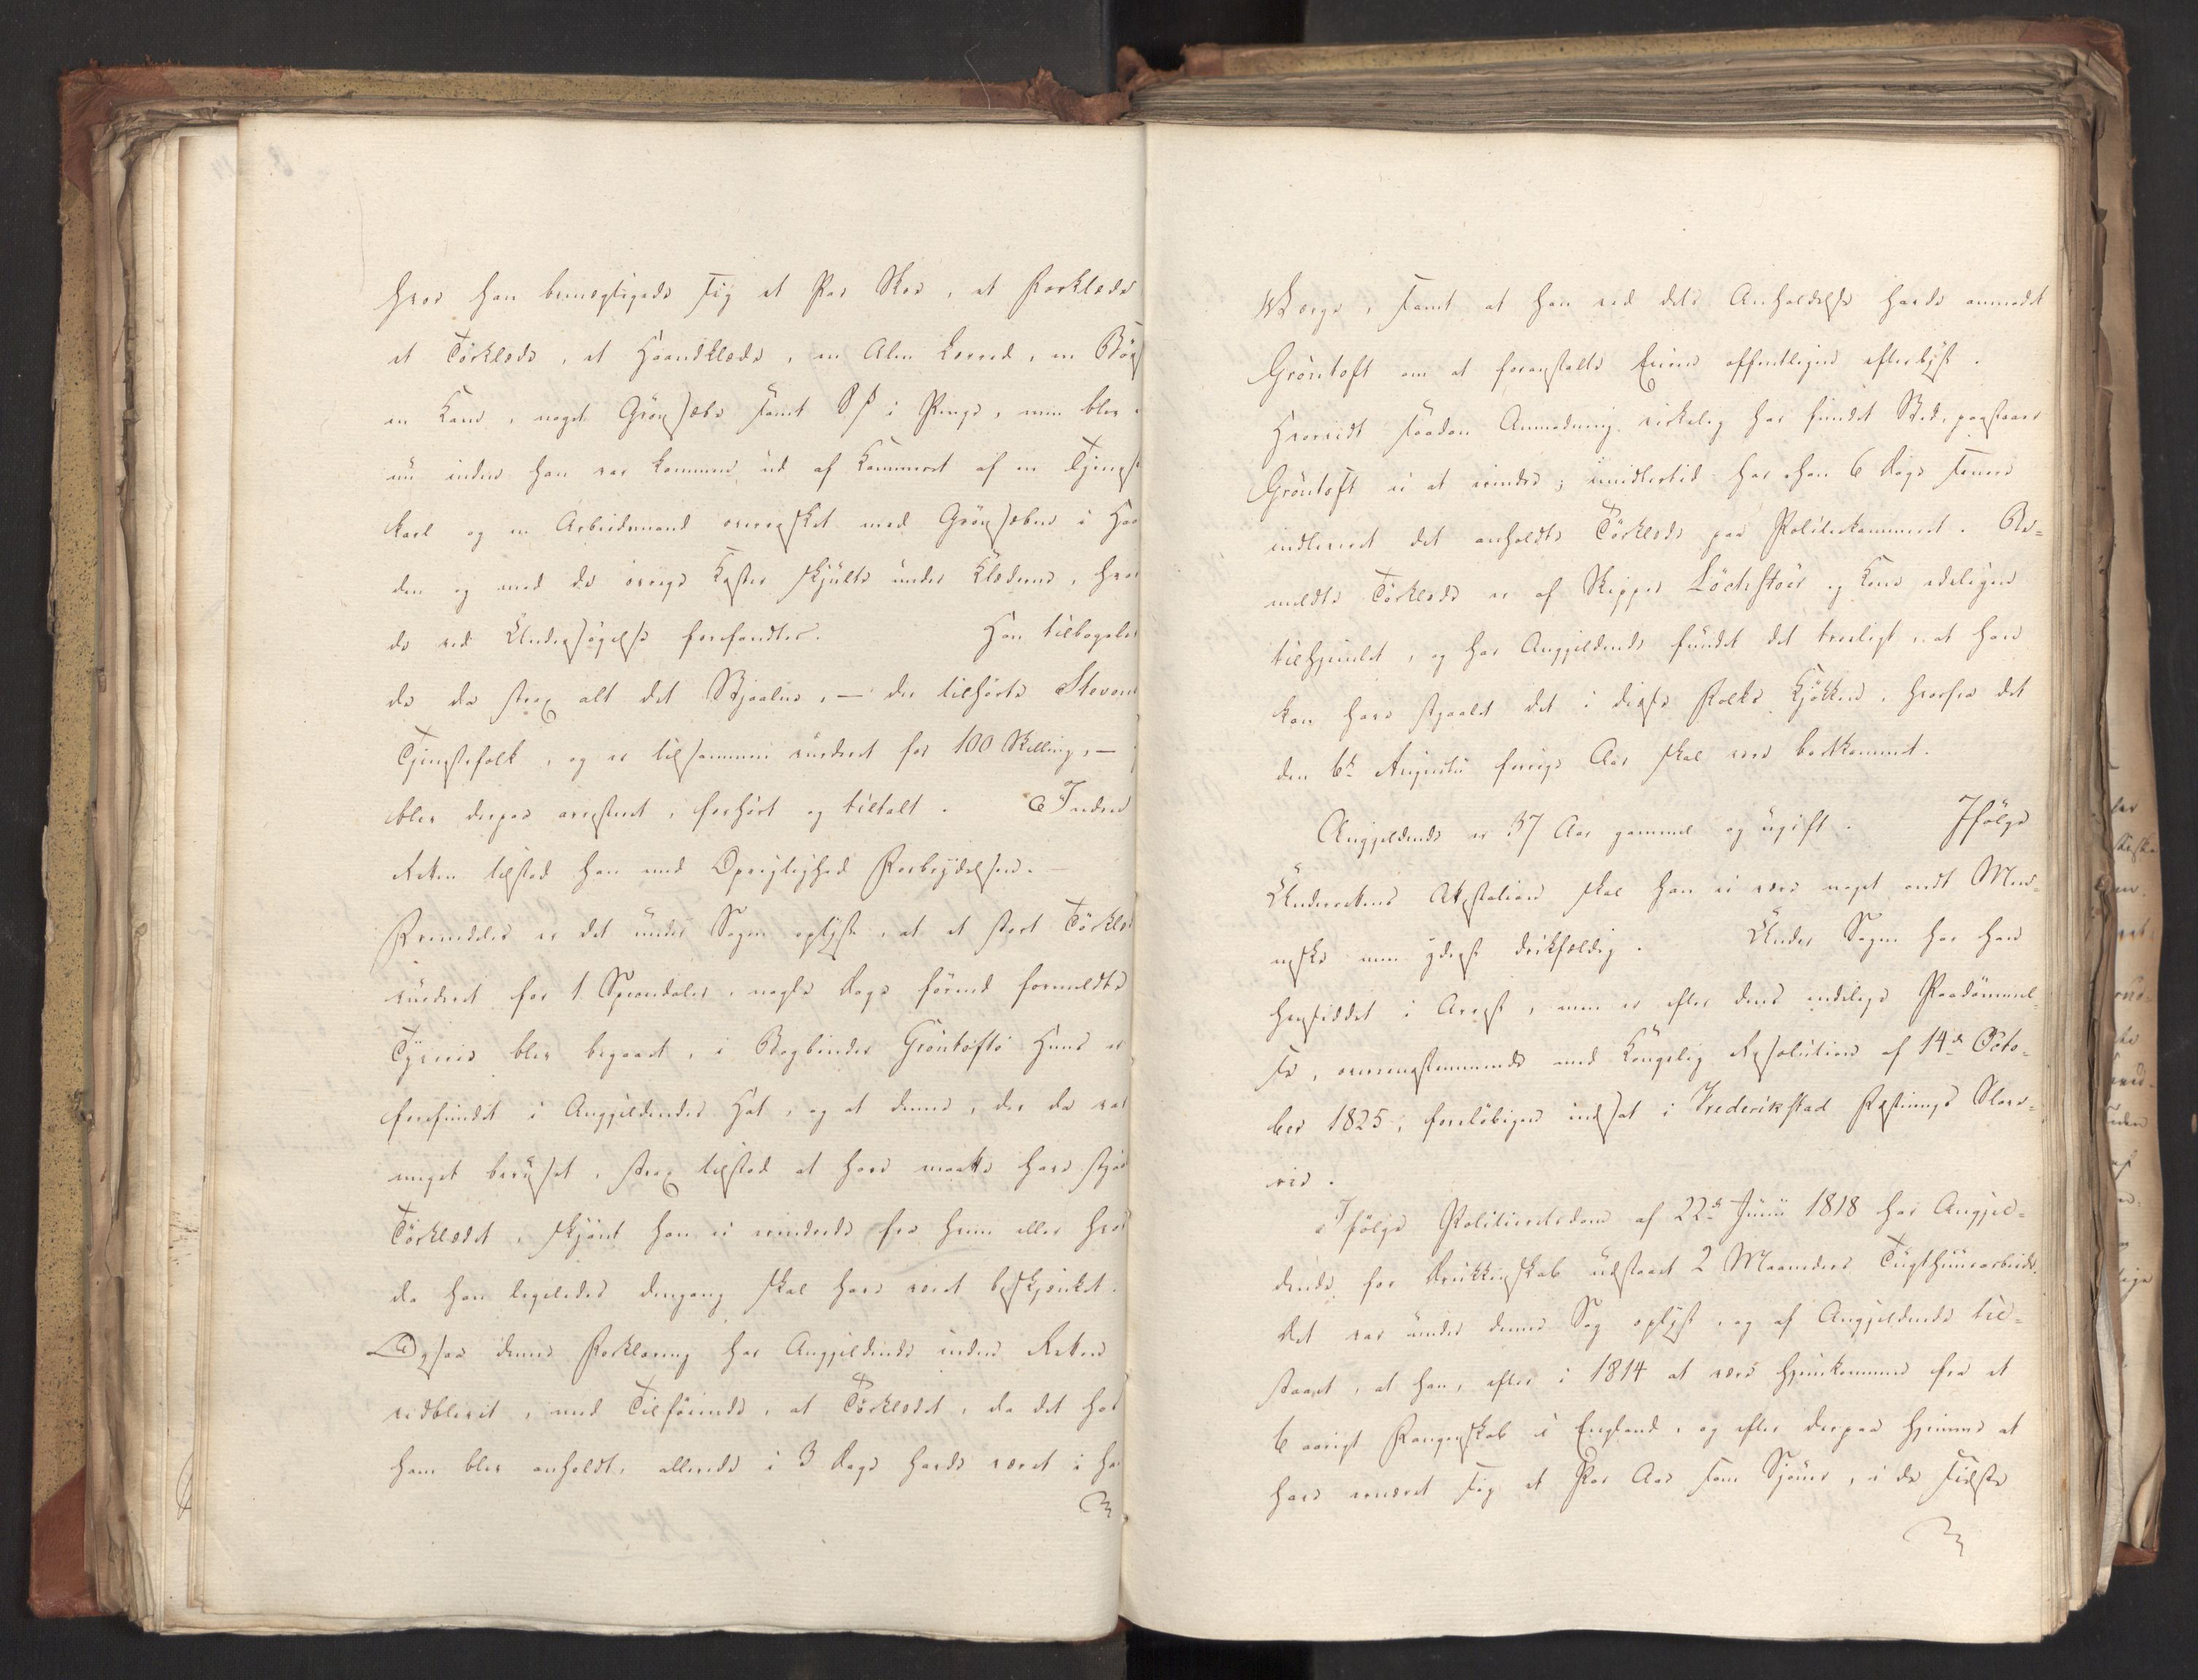 hvor han bemægtigede sig et Par Skoe, et Forklæde
et Tørklæde, et Haandklæde, en Alen Lerred, en Bøs
en Kam, noget Grønsæbe samt 8 ß i Penge, men blev
nu inden han var kommen ud af Kammeret af en Tjenest
karl og en Arbeidsmand overrasket med Grønsæben i Haa
den og med de øvrige Koster skjulte under Klæderne, hvor
de ved Undersøgelse forefandtes. Han tilbagelev
de da strax alt det Stjaalne, — der tilhørte Stevens
Tjenestefolk, og er tilsammen vurderet for 100 Skilling, —
blev derpaa arresteret, forhørt og tiltalt. Inden
Retten tilstod han med Oprigtighed Forbrydelsen. —
Fremdeles er det under Sagen oplyst, at et stort Tørklæ
vurderet for 1 Speciedaler, nogle Dage førend formeldte
Tyverie blev begaaet, i Bogbinder Grøntofts Huus er
forefundet i Angjeldendes Hat, og at denne, der da var
meget beruset, strax tilstod at have maatte have stjaa
Tørklædet, skjønt han ei erindrede fra hvem eller hvor
da han ligeledes dengang skal have været beskjænket.
Ogsaa denne Forklaring har Angjeldende inden Retten
vedblevet, med Tilføiende, at Tørklædet, da det hos
ham blev anholdt, allerede i 3 Dage havde været i ha
Værge, samt at han ved dets Anholdelse havde anmodet
Grøntoft om at foranstalte Eieren offentligen efterlyst.
Hvorvidt saadan Anmodning virkelig har fundet Sted, paastaaer
Grøntoft ei at erindre; imidlertid har han 6 Dage senere
indleveret det anholdte Tørklæde paa Politiekammeret. Be=
meldte Tørklæde er af Skipper Löchstöer og Kone edeligen
tilhjemlet, og har Angjeldende fundet det troeligt, at han
kan have stjaalet det i disse Folks Kjøkken, hvorfra det
den 6te Augusti forrige Aar skal være bortkommet.
Angjeldende er 37 Aar gammel og ugift. Ifølge
Underrettens Attestation skal han ei være noget ondt Men=
neske men yderst drikfældig. Under Sagen har han
hensiddet i Arrest, men er efter dens endelige Paadømmel=
se, overensstemmende med Kongelig Resolution af 14de Octo=
ber 1825, foreløbigen indsat i Frederikstad Fæstnings Slave=
rie.
Ifølge Politieretsdom af 22de Junii 1818 har Angjel=
dende for Drukkenskab udstaaet 2 Maaneders Tugthuusarbeide.
Det var under denne Sag oplyst, og af Angjeldende til=
staaet, at han, efter i 1814 at være hjemkommen fra et
6 aarigt Fangenskab i England, og efter derpaa hjemme at
have ernæret sig et Par Aar som Sjømand, i de sidste